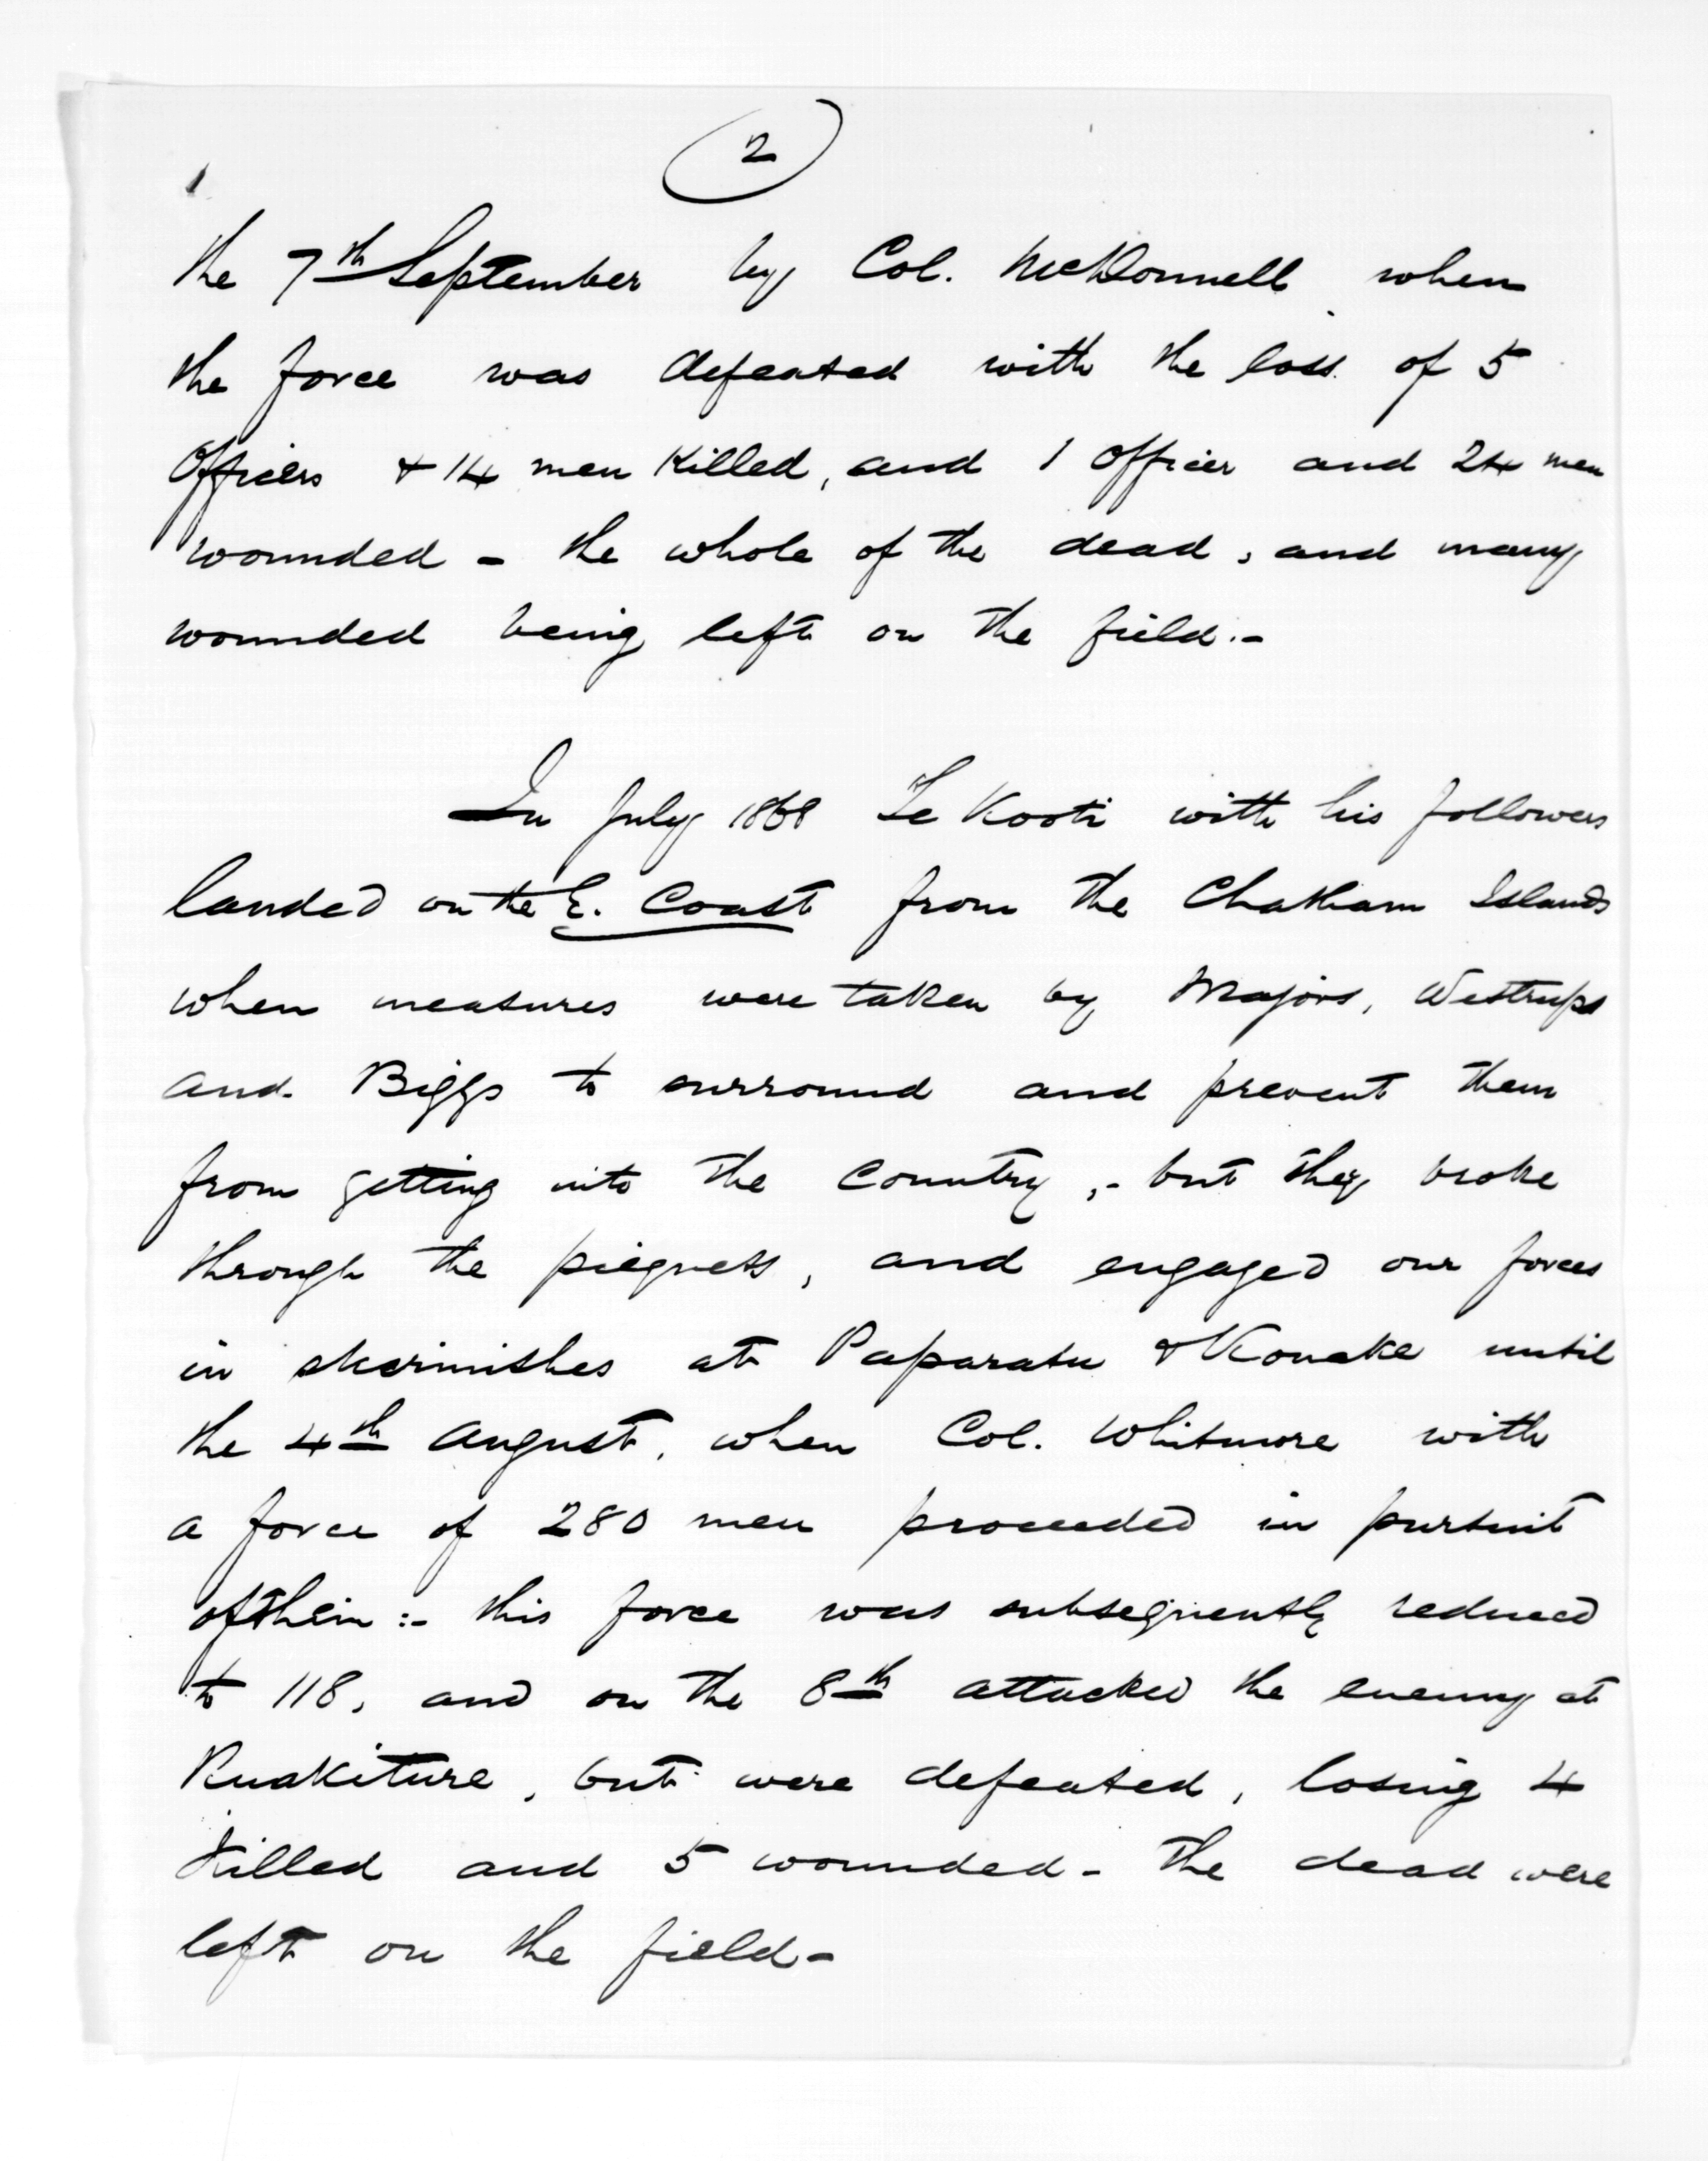 2
the 7th September by Col. McDonnell when
the force was defeated with the loss of 5
Officers & 14 men killed, and 1 officer and 24 men
wounded - the whole of the dead, and many
wounded being left on the field.-
In July 1868 Te Kooti with his followers
landed on the E. Coast from the Chatham Islands
when measures were taken by Majors, Westrupp
and Biggs to surround and prevent them
from getting into the Country,- but they broke
through the piequets, and engaged our forces
in skirmishes at Paparatu & Konake until
the 4th August, when Col. Whitmore with
a force of 280 men proceeded in pursuit
of them:- this force was subsequently reduced
to 118, and on the 8th attacked the enemy at
Ruakiture, but were defeated, losing 4
killed and 5 wounded - the dead were
left on the field -